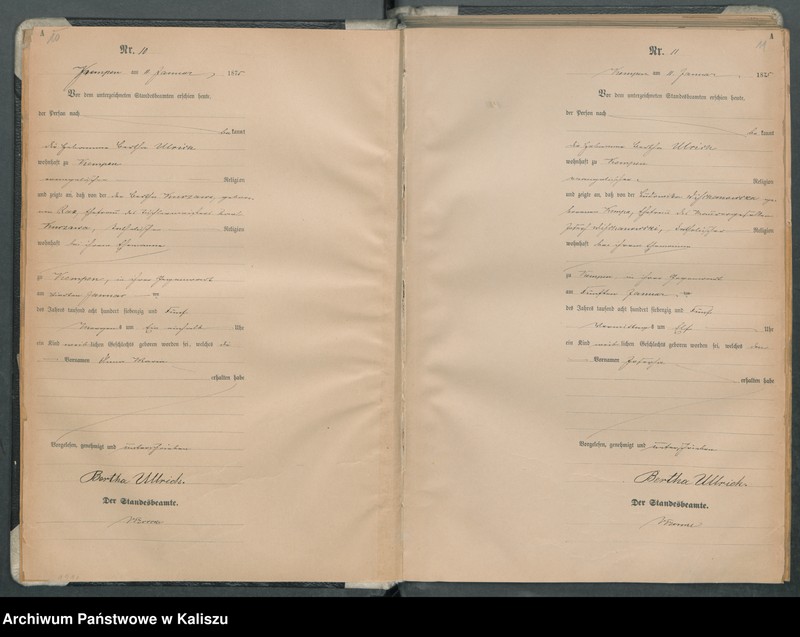 A
Nr. 10
Kempen am 11 Januar 1875
Vor dem unterzeichneten Standesbeamten erschien heute,
der Person nach
bekannt
die Hebamme Bertha Ullrich
wohnhaft zu Kempen
evangelischer Religion
und zeigte an, daß von der Bertha Kurzawa, geboren
Kurzawa, katholischer Religion
wohnhaft bei ihrem Ehemanne
zu Kempen, in ihrer Gegenwart
am Januar
des Jahres tausend acht hundert siebenzig und fünf
Morgens um Ein einhalb Uhr
ein Kind weiblichen Geschlechts geboren worden sei, welches die
Vornamen Anna Maria
erhalten habe
Vorgelesen, genehmigt und unterschrieben
Bertha Ullrich.
Der Standesbeamte.
A
Nr. 11
Kempen am 11 Januar 1875
Vor dem unterzeichneten Standesbeamten erschien heute,
der Person nach
bekannt
die Hebamme Bertha Ullrich
wohnhaft zu Kempen
evangelischer Religion
und zeigte an, daß von der Ludowika
katholischer Religion
wohnhaft bei ihrem Ehemanne
zu Kempen in ihrer Gegenwart
am fünften Januar
des Jahres tausend acht hundert siebenzig und fünf
Vormittags um Elf Uhr
ein Kind weiblichen Geschlechts geboren worden sei, welches den
Vornamen Josepha
erhalten habe
Vorgelesen, genehmigt und unterschrieben
Bertha Ullrich.
Der Standesbeamte.
Archiwum Państwowe w Kaliszu